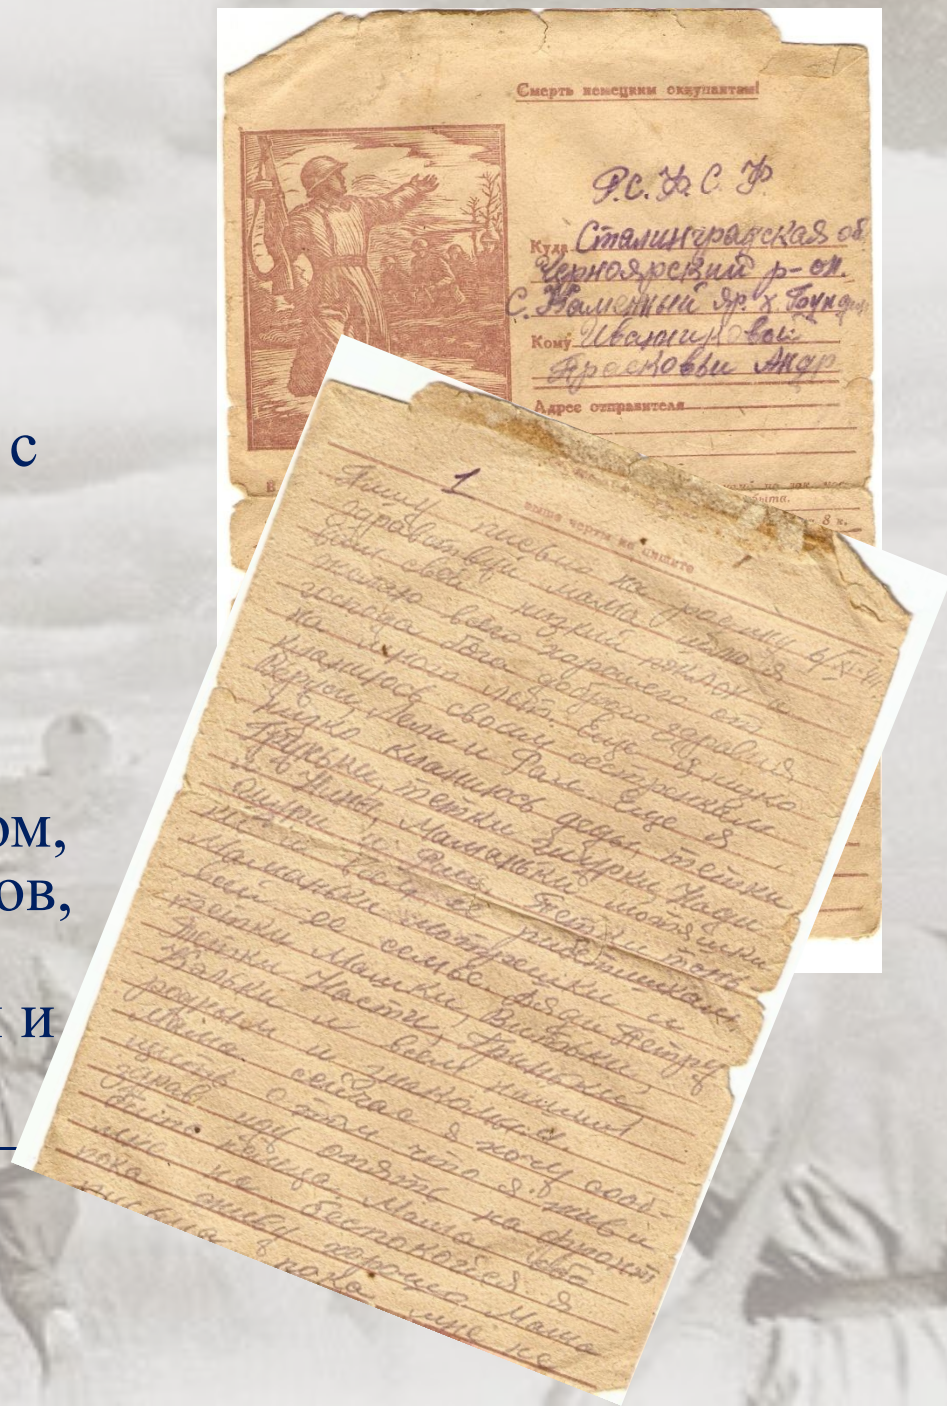 с
ом,
ов,
и
Смерть немецким оккупантам!
Р.С.Ф.С.Р
Куда Сталинградская об
Черноярский р-он.
С. Каменный Яр. х.
Кому Иванниковой
Прасковьи Андр
Адрес отправителя
В
8 к.
1
выше черты не пишите
Пишу письмо на родину 6/XI-
здравствуй мама шлю я
вам свой низкий поклон и
желаю всего харошего от
господа бога доброго здравия
на много лет. еще я низко
кланиюсь своим сестренкам
Веруси, Лели и Раи еще я
низко кланиюсь деды, тетки
тетки Шурки, Нади
и Нины, Маманьки
и
маманьки матрешки и
всей ее семье, дяди Петру
тетки Машки, Витьки,
тетки Насти, Гримыне,
Вальки и всем нашим
родным и знакомым.
Мама сейчас я хочу сооб-
щить о том что я жив и
здрав но опять на фронт
бить фрица. Мама обо
мне не беспокойся. я
пока живу хорошо Мама
письма пока мне не